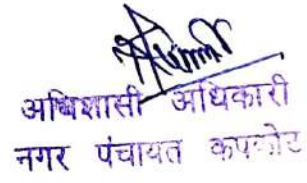 अधिशासी अधिकारी
नगर पंचायत कपकोट